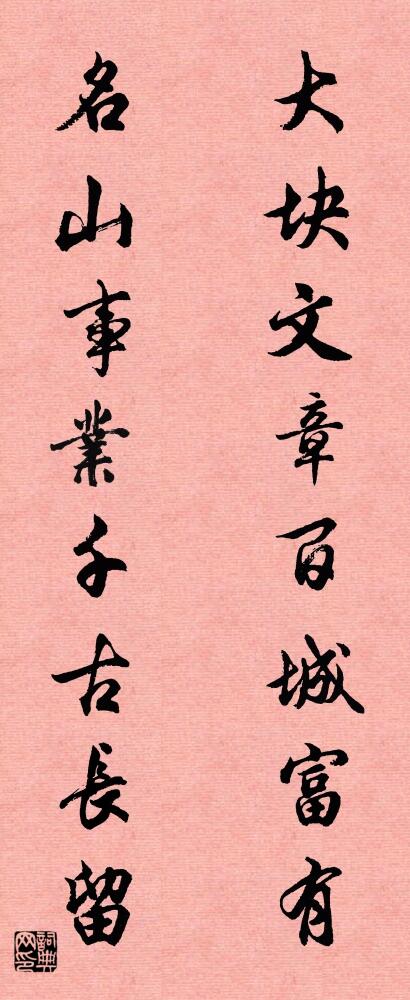 大块文章百城富有
名山事業千古長留
詞典网印